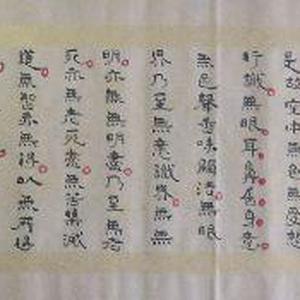 是故空中無色無受想
行識無眼耳鼻舌身意
無色聲香味觸法無眼
界乃至無意識界無無
明亦無無明盡乃至無老
死亦無老死盡無苦集滅
道無智亦無得以無所得